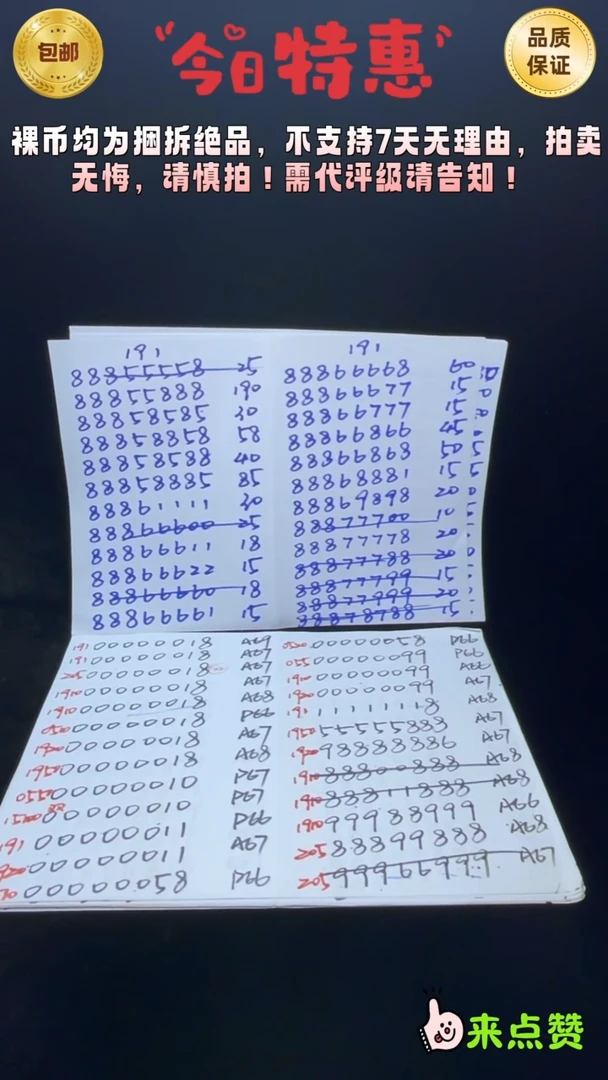 包邮
今日特惠
品质
保证
裸币均为捆拆绝品，不支持7天无理由，拍卖
无悔，请慎拍！需代评级请告知！
191
88855558 25
88855888 190
88858585 30
88858858 58
88858588 40
88858885 85
88861111 30
88866600 25
88866611 18
88866622 15
88866660 18
88866661 15
191
88866668
88866677
88866777
88866866
88866868
88868881 15
88869898 20
88877700 10
88877778 20
88877788 20
88877799 15
88877999 20
88878788 15
191 00000018 A69
191 00000018 A67
205 00000018 A67
1910 00000018 A67
1910 00000018 A68
0520 00000018 P66
1920 00000018 A67
1950 00000018 A68
0550 00000010 P67
00000010 P67
191 00000011 P66
00000011 A67
00000058 P66
0520 00000058 P66
055 00000099 P66
1910 00000099 A66
1920 00000099 A67
191 11111118 A68
1950 55555888 A67
1920 98888386 A67
1910 88800888 A68
1910 88811888 A68
1910 99988999 A66
205 88899888 A68
205 99966999 A67
来点赞